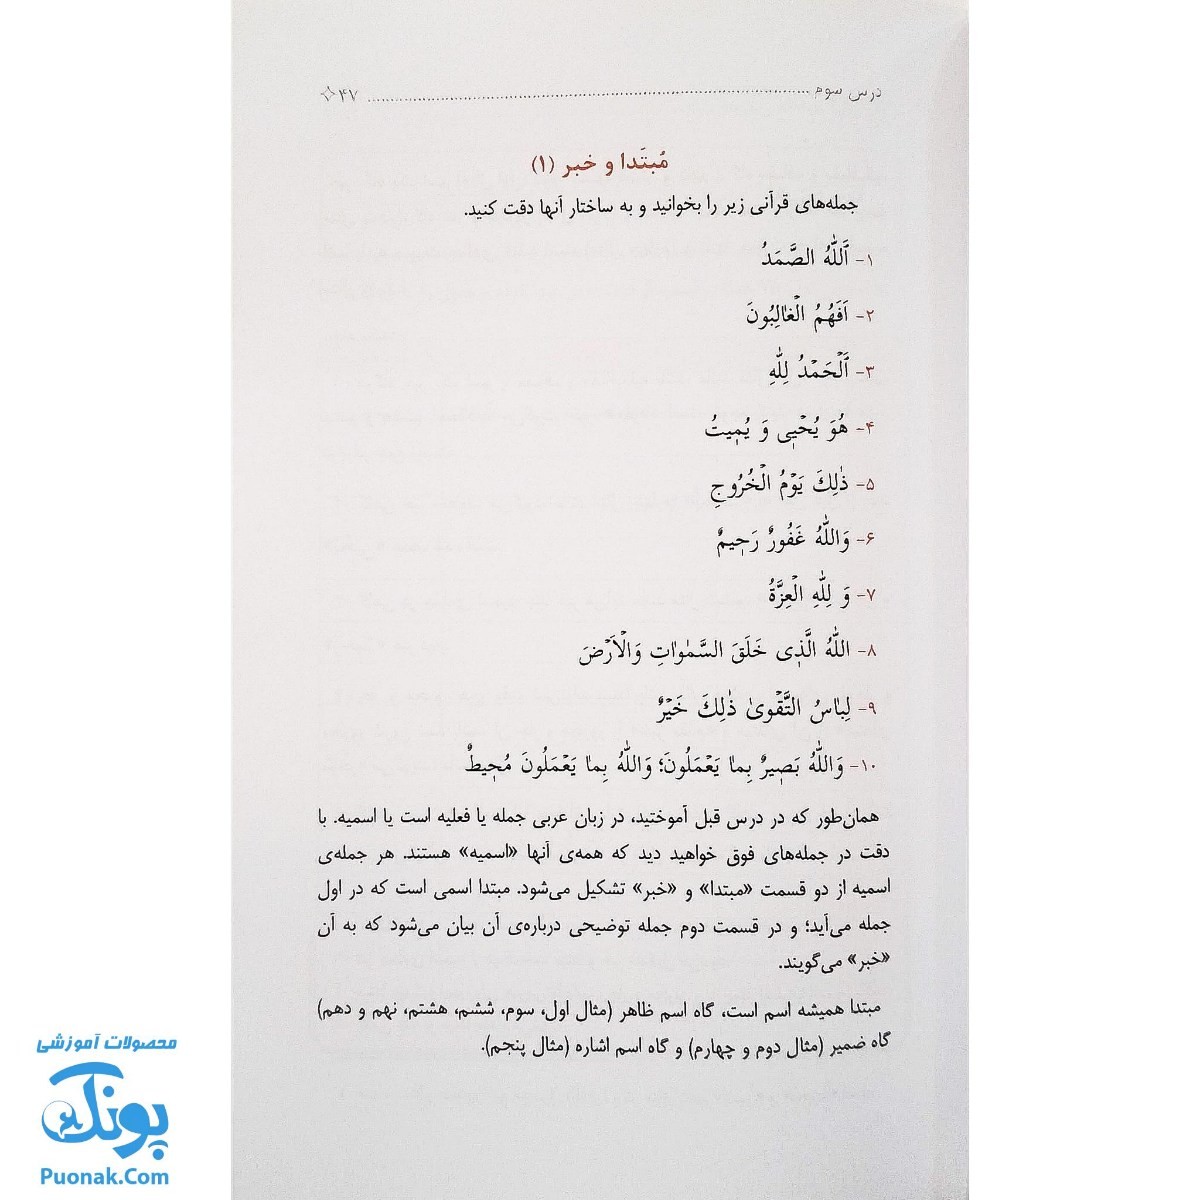 درس سوم ........ ۴۷
مُبتَدا و خبر (۱)
جمله‌های قرآنی زیر را بخوانید و به ساختار آنها دقت کنید.
۱- اَللّٰهُ الصَّمَدُ
۲- اَفَهُمُ الْغالِبُونَ
۳- اَلْحَمْدُ لِلّٰهِ
۴- هُوَ يُحْيٖى وَ يُمٖيتُ
۵- ذٰلِكَ يَوْمُ الْخُرُوجِ
۶- وَاللّٰهُ غَفُورٌ رَحٖيمٌ
۷- وَ لِلّٰهِ الْعِزَّةُ
۸- اللّٰهُ الَّذٖى خَلَقَ السَّمٰواتِ وَالْاَرْضَ
۹- لِباسُ التَّقْوىٰ ذٰلِكَ خَيْرٌ
۱۰- وَاللّٰهُ بَصٖيرٌ بِما يَعْمَلُونَ؛ وَاللّٰهُ بِما يَعْمَلُونَ مُحٖيطٌ
همان‌طور که در درس قبل آموختید، در زبان عربی جمله یا فعلیه است یا اسمیه. با
دقت در جمله‌های فوق خواهید دید که همه‌ی آنها «اسمیه» هستند. هر جمله‌ی
اسمیه از دو قسمت «مبتدا» و «خبر» تشکیل می‌شود. مبتدا اسمی است که در اول
جمله می‌آید؛ و در قسمت دوم جمله توضیحی درباره‌ی آن بیان می‌شود که به آن
«خبر» می‌گویند.
مبتدا همیشه اسم است، گاه اسم ظاهر (مثال اول، سوم، ششم، هشتم، نهم و دهم)
گاه ضمیر (مثال دوم و چهارم) و گاه اسم اشاره (مثال پنجم).
محصولات آموزشی
پونک
Puonak.Com